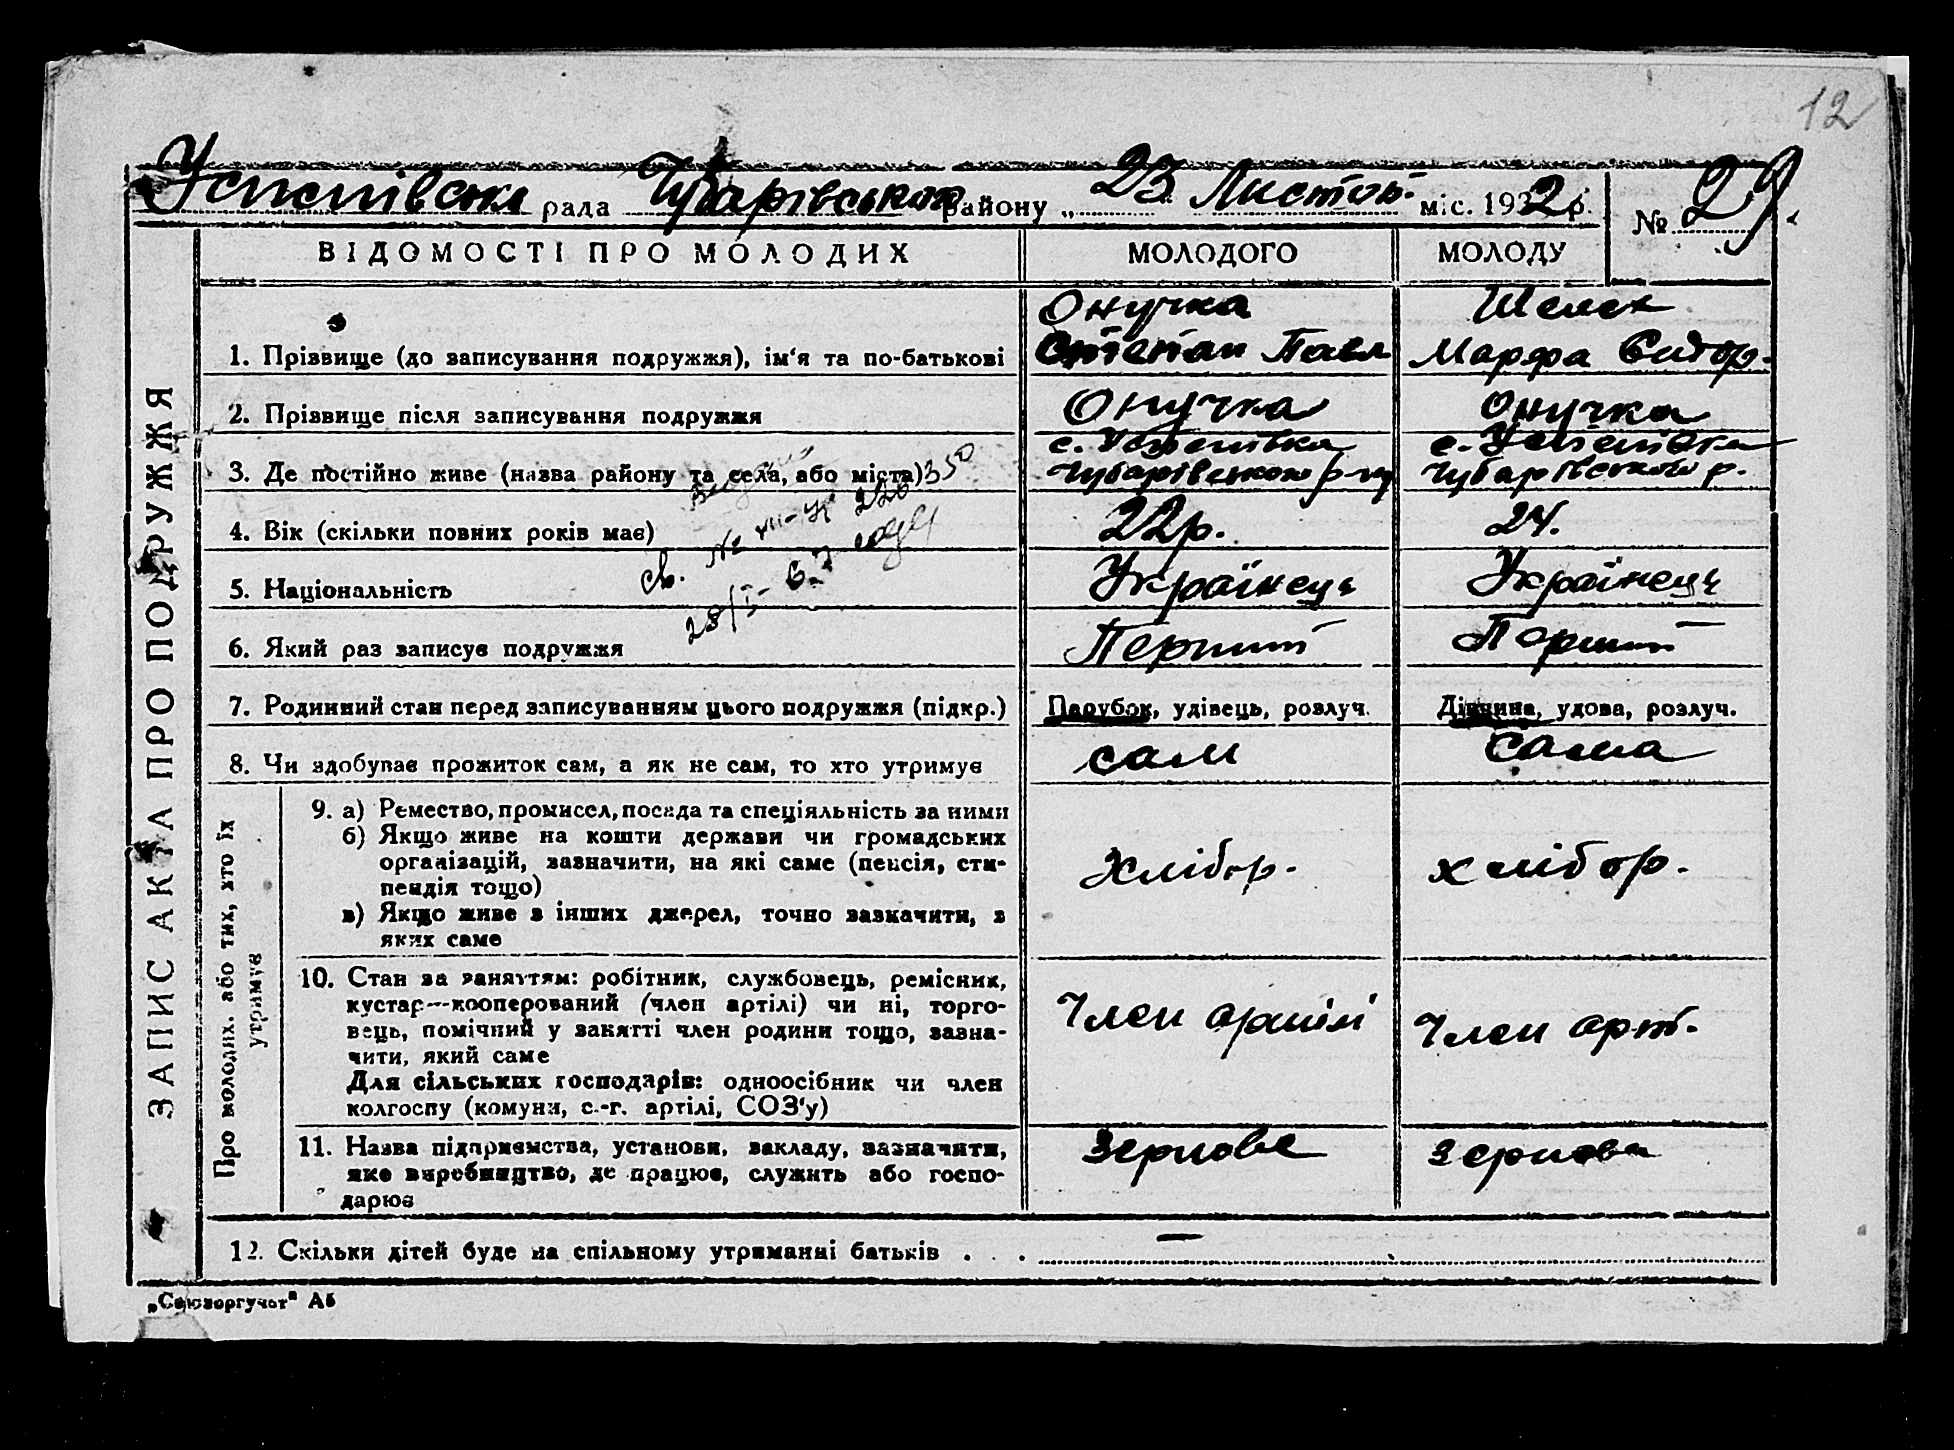 12
Успенівська рада Чубарівського району „ 23 Листоп. міс. 1932 р. № 29.
ЗАПИС АКТА ПРО ПОДРУЖЖЯ
ВІДОМОСТІ ПРО МОЛОДИХ МОЛОДОГО МОЛОДУ
Онучка Шелест
1. Прізвище (до записування подружжя), ім'я та по-батькові Степан Павл Марфа Сидор.
2. Прізвище після записування подружжя Онучка Онучка
с. Успенівка с. Успенівка
3. Де постійно живе (назва району та села, або міста) 350 Чубарівського р-ну Чубарівського р.
4. Вік (скільки повних років має) 22 р. 24.
св. №
28/I- 67 году
5. Національність Українець Українець
6. Який раз записує подружжя Перший Перший
7. Родинний стан перед записуванням цього подружжя (підкр.) Парубок, удівець, розлуч. Дівчина, удова, розлуч.
8. Чи здобуває прожиток сам, а як не сам, то хто утримує сам сама
Про молодих, або тих, хто їх
утримує
9. а) Ремество, промисел, посада та спеціяльність за ними
б) Якщо живе на кошти держави чи громадських
організацій, зазначити, на які саме (пенсія, сти-
пендія тощо)
в) Якщо живе з інших джерел, точно зазначити, з
яких саме
Хлібор. хлібор.
10. Стан за заняттям: робітник, службовець, ремісник,
кустар—кооперований (член артілі) чи ні, торго-
вець, помічний у занятті член родини тощо, зазна-
чити, який саме
Для сільських господарів: одноосібник чи член
колгоспу (комуни, с.-г. артілі, СОЗ'у)
Член артілі Член арт.
11. Назва підприємства, установи, закладу, зазначити,
яке виробництво, де працює, служить або госпо-
дарює
зернове зернова
12. Скільки дітей буде на спільному утриманні батьків . . . —
„Союзоргучет" А5